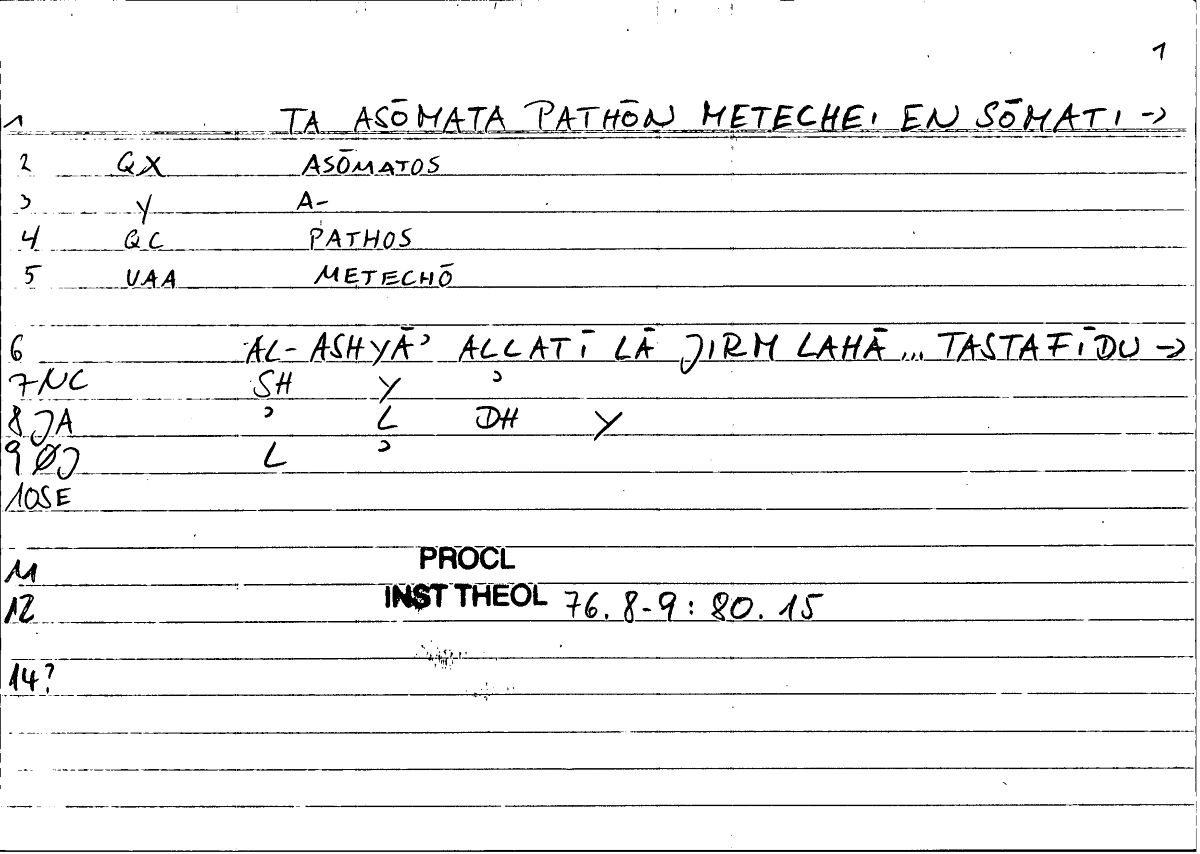 1
1 TA ASŌMATA PATHŌN METECHEI EN SŌMATI ->
2 QX ASŌMATOS
3 Y A-
4 QC PATHOS
5 VAA METECHŌ
6 AL-ASHYĀʾ ALLATĪ LĀ JIRM LAHĀ... TASTAFĪDU ->
7 NC SH Y ʾ
8 JA ʾ L DH Y
9 ØJ L ʾ
10 SE
11 PROCL
12 INST THEOL 76.8-9: 80.15
14?